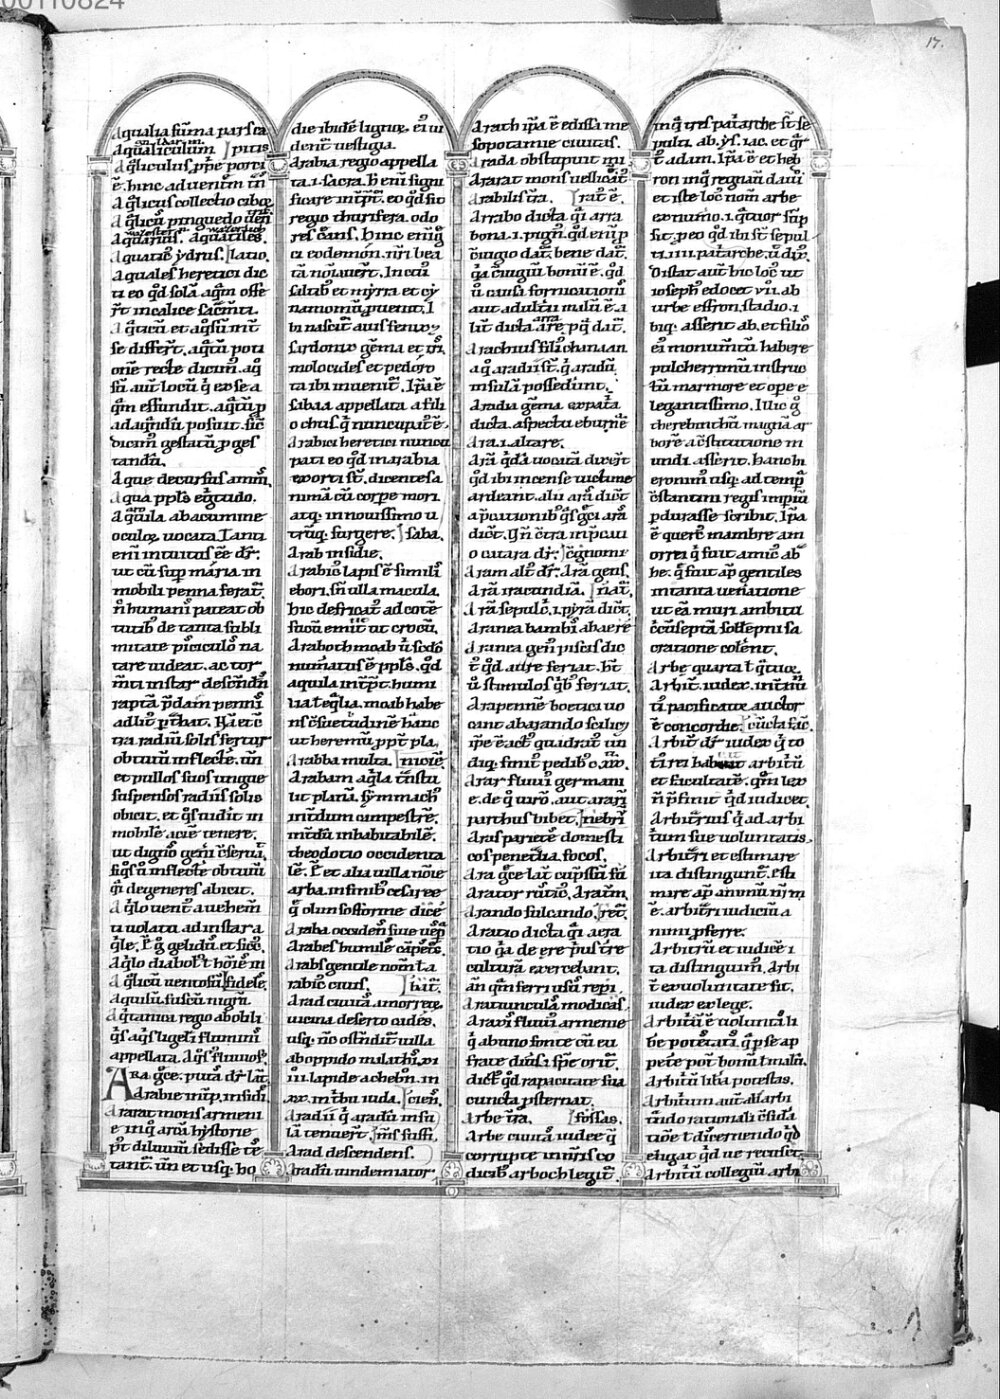 00110824
17.
Aqualia sum̄a pars ca
Aq̈ualiculum pitis
Aq̈liculus, ꝓpͤ porci
ē. hinc ad uentrem
Aq̈licus collectio cibo
Aq̈licū pinguedo
Aquarius. Aquatiles.
Aquatic ydrus. latio.
Aquales heretici dic
ti eo qd̄ solā aq̄m offe
rt̄ in calice sac̄m̄ti.
Aq̈ticū et aq̈sū
se differt̄. aq̈tū poti
one recte dicim᷒. aq̈
sū aut̄ locū q̇ ex se a
q̄m effundit. aq̈tū ꝓ
adaq̈ndū posuit. sic̄
dicam᷒ gestatū ꝓ ges
tandū.
Aque decursus
Aqua ppl̄s
Aq̈uila ab acumine
oculoꝝ uocata. Tanti
eni intuitus eē dr̄.
ut cū sup̄ maria in
mobili penna feratͬ.
n̄ humanis pateat ob
tutibꝰ de tanta subli
mitate pisciculos na
tare uideat. ac tor
m̄ti instar descendēs
raptā p̄dam pennis
ad litꝰ pͬthat. Nā et c̄
tra radiū solis fertur
obtutū inflectē. un̄
et pullos suos ungue
suspensos radiis solis
obicit. et q̊s uidit in
mobilē aciē tenere.
ut dignos gen̄i c̄seruat.
siq̊s ū inflectē obtutū
q̈si degeneres abicit.
Aq̈lo uent᷒ a uehem̄
ti uolatu ad instar a
q̈le. Est gͦ gelidus et siccꝰ.
Aq̈lo diabolꝰ ł hoīēs in
Aq̈licū uentosū fideles.
Aquilū fuscū nigrū.
Aq̈tanica regio ab obli
q̊s aq̊s ligeris fluminis
appellata. Aq̊sꝰ fluuiosꝰ.
Ara gͬce. puta dr̄ lat̄.
Ararat mons armeni
e in q̊ arcā hystorie
pt̄ diluuiū sedisse te
tant᷒. un̄ et usq; ho
die ibidē lignoꝝ. ei᷒ ui
dent᷒ uestigia.
Arabia regio appella
ta .i. sacra. h̄ eni signi
ficare int̄p̄t᷒. eo qd̄ sit
regio thurifera. odo
res c̄ans. hinc eni g̊
ci eodemon. n̄ri bea
tā no͞iauert̄. In cui᷒
saltibꝰ et myrra et cy
namomū ꝓuenit. I
bi nascit᷒ auis fenix
sardonix gēma et
molocides et pedoro
ta ibi inuenit᷒. Ip̄a ē
saba a appellata a fili
o chus. q̄ nuncupat᷒ ē.
Arabici heretici nuncu
pati eo qd̄ in arabia
exorti st̄. dicentes a
nimā cū corpe mori
atq; in nouissimo u
trūq; surgere. saba.
Arab insidie.
Arabicꝰ lapis ē similis
ebori. sn̄ ulla macula.
hic defricat᷒ ad cotē
sucū emit᷒ ut crocū.
Araboth moab ū scd̄o
numatus ē ppl̄s. qd̄
aquila int̄p̄t᷒. humi
lia ł eq̈lia. moab habe
ns c̄suetudinē hanc
ut heremū. ꝓpt̄ pla
Arabba multa. nicie.
Arabam aq̈la tͬnstu
lit planā. symmachꝰ
int̄dum campestrē.
int̄dū inhabitabilē.
theodotio occidenta
lē. Ē et alia uilla no͞ie
arba. in finibꝰ cesaree
q̄ olim sofforine dice
Araba occidens siue uesp̄
Arabes humiles campestres.
Arabs gentile nom̄. ł a
rabicꝰ ciuis. bat᷒.
Arad ciuitas amorreoꝝ
uicina deserto cades.
usq; nc̄ ostendit᷒ uilla
ab oppido malathis xx
iiii. lapide a chebron. in
xx. in tribu iuda. cien̄.
Aradii q̇ aradū insu
lā tenuert̄. ins̄ suffi
Arad descendens.
Aradū uindemiator.
Arath ip̄a ē edissa me
sopotamie ciuitas.
Arada obstupuit mi
Ararat mons uellicat᷒
Arabilis tͬra. rat᷒ ē.
Arrabo dicta q̈si arra
bona .i. pign᷒. qd̄ eni ꝓ
c̄iugio dat᷒. bene dat᷒.
q̇a c̄iugiū bonū ē. qd̄
ū causa fornicationis
aut adulterii malū ē. a
lit̄ dicta arre ꝑ q̄ dat᷒.
Arachius filiꝰ chanaan
a q̊ aradii st̄. q̇ aradū
insulā possederunt.
Aradia gēma ex parata
dicta. aspectu eburnē
Ara .i. altare.
Arā q̈dā uocatā dixert̄
qd̄ ibi incense uictime
ardeant. alii arā dict᷒
a p̄cationibꝰ q̈s g̊ci ara
dict᷒. un̄ c̄tra inp̄cati
o catara dr̄. c̄gnomē
Aram altꝰ dr̄. arā gens.
Arā iracundia. nat᷒.
Arā sepulc̄. i. pyrā dict᷒.
Aranea bambiꝰ ab aere
Aranea genꝰ piscis dic
t᷒ qd̄ aure feriat. h̄t
ū stimulos q̇bꝰ feriat.
Arapennē boetici uo
cant ab arando scilicꝫ
ip̄e ē act᷒ quadrat᷒ un
diq; finit᷒ pedibꝰ c. xx.
Arar fluuiꝰ germani
e. de q̊ uirō. aut ararī
parthus bibet. tenebris
Aras parietes domesti
cos penetralia. focos.
Ara gͬce lat̄ cupissa sū
Arator rusticꝰ. Aratrum.
Arando sulcando. ret᷒.
Aratio dicta q̈si aera
tio q̇a de ere pͥus tͬre
culturā exercebant.
an̄ q̄m ferri usū repi
Aratiuncula modicas
Araxis fluuiꝰ armenie
q̇ ab uno fonte cū eu
frate diūsis specub᷒ oritur.
dict᷒ qd̄ rapacitate sua
cuncta ꝓsternat.
Arbe tͬra. fossas.
Arbe ciuitas iudee q̄
corrupte in n̄ris co
dicibꝰ arboch legit᷒.
in q̄ tres patͬarche st̄ se
pulti. ab. ys. iac. et qͬr
t᷒ adam. Ip̄a ē et heb
ron in q̄ regnauit dauid
et iste locꝰ nom̄ arbe
ex numo .i. q̈tuor sūp
sit. ꝑ eo qd̄ ibi st̄ sepul
ti. iiii. patͬarche. ū dixim᷒.
Distat aut̄ hic locꝰ ut
ioseph᷒ edocet vii. ab
urbe effron stadio .i
biq; asserit ab. et filioꝝ
ei᷒ monum̄ta habere
pulcherrimū instruc
tū marmore et ope e
legantissimo. Illic gͦ
therebinthū magnā ar
borē a c̄stitutione m
undi asserit. hanc hi
eronim᷒ usq; ad temp᷒
c̄stantini regis impiū
ꝑdurasse scribit. Ip̄a
ē querc᷒ mambre am
orrei q̇ fuit amicꝰ ab
he. q̄ fuit ap̄ gentiles
in tanta ueneratione
ut eā muri ambitu
c̄cūsepta sollep̄ni sa
cratione colent᷒.
Arbe quarta ł q̈tuor.
Arbit᷒. iudex. int̄nūtiꝰ
ti᷒. pacificatr̄. auctor
ē concordie. cūcta fac᷒.
Arbit᷒ dr̄ iudex q̇ to
tiꝰ rei habeat arbitriū
et facultatē. q̄m lex
n̄ p̄finit qd̄ iudicet.
Arbitrius q̈si ad arbi
trium sue uoluntatis.
Arbitrari et estimare
ita distingunt᷒. esti
mare ap̄ animū n̄rm
ē. arbitrari iudiciū a
nimi ꝓferre.
Arbitriū et iudiciū i
ta distinguim᷒. Arbi
t᷒ ex uoluntate fit.
iudex ex lege.
Arbitriū ē uoluntas li
be potestatis. q̄ ꝑ se ap
petͤ pot̄ bona ł mala.
Arbitriū libͣ potestas.
Arbitrium aut̄ ał arbi
trando rationali c̄sidā
tiōe ł discernendo qd̄
eligat qd̄ ue recuset.
Arbitriū collegiū arbi